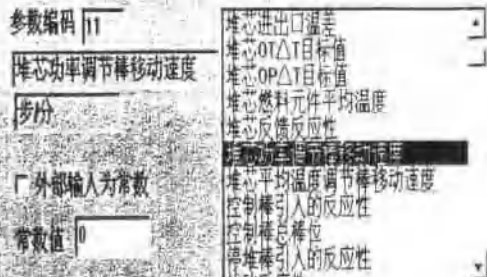 参数编码 11
堆芯功率调节棒移动速度
步/分
外部输入为常数
常数值 0
堆芯进出口温差
堆芯OT△T目标值
堆芯OP△T目标值
堆芯燃料元件平均温度
堆芯反馈反应性
堆芯功率调节棒移动速度
堆芯平均温度调节棒移动速度
控制棒引入的反应性
控制棒总棒位
停堆棒引入的反应性